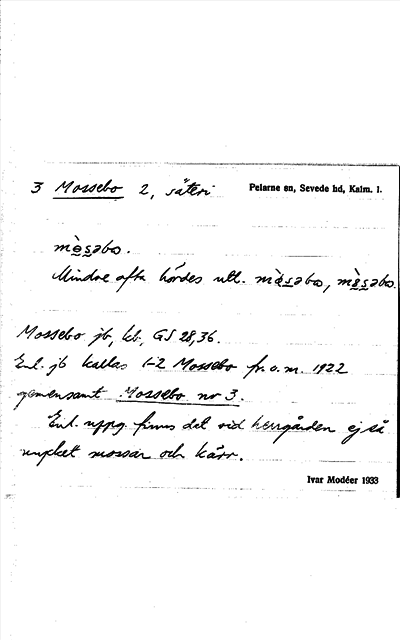 3 Mossebo 2, säteri
Pelarne sn, Sevede hd, Kalm. l.
mòs̲əbo.
Mindre ofta hördes utt. mòs̲əbo, mòs̲əbo.
Mossebo jb, kb, GS 28, 36.
Enl. jb kallas 1-2 Mossebo fr. o. m. 1922
gemensamt Mossebo nr 3.
Enl. uppg. finns det vid herrgården ej så
mycket mossar och kärr.
Ivar Modéer 1933